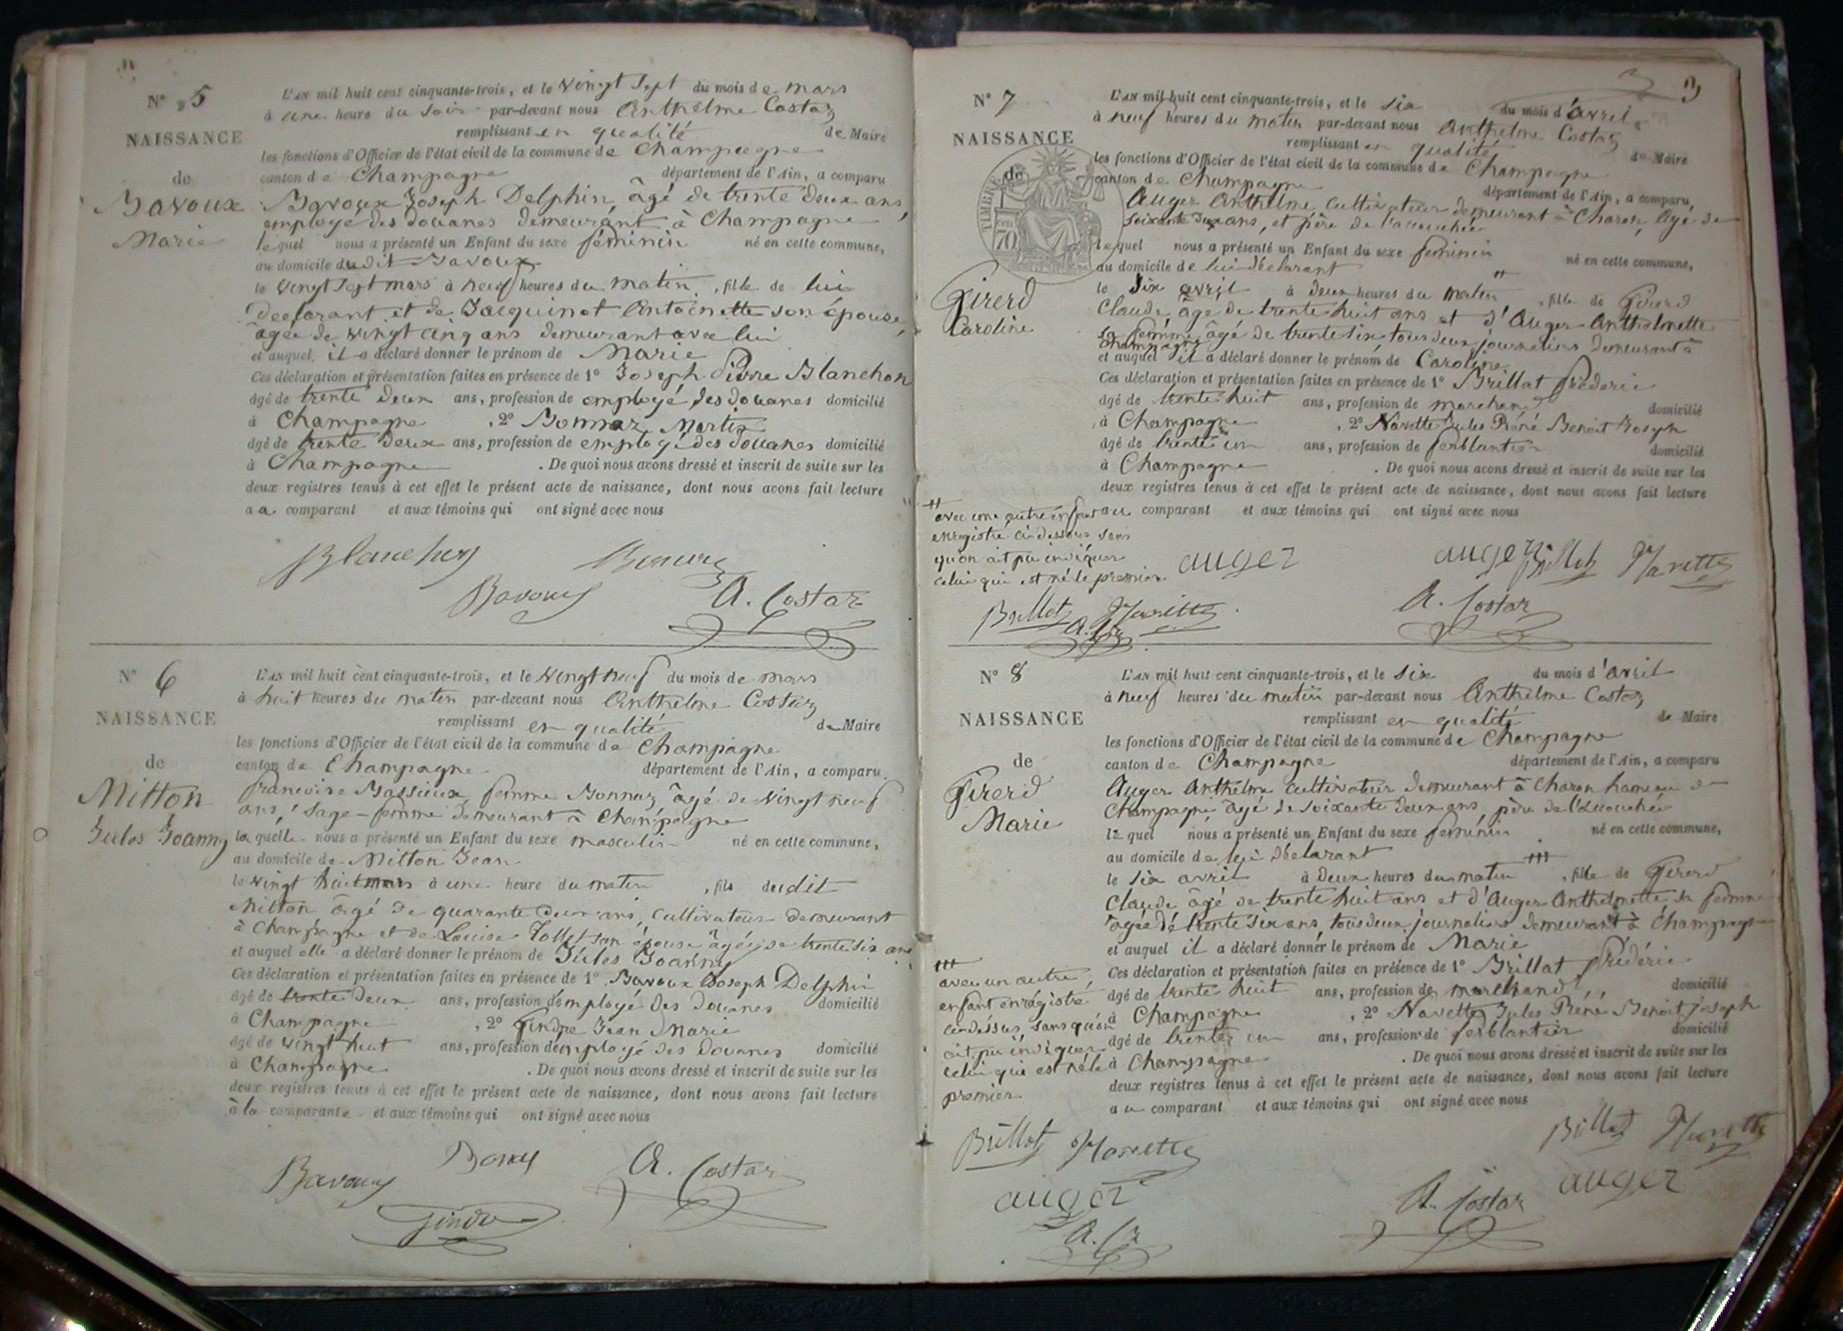 N° 5
NAISSANCE
de
Bavoux
Marie
L'AN mil huit cent cinquante-trois, et le vingt sept du mois de mars
à une heure du soir par-devant nous Anthelme Costaz
remplissant en qualité de Maire
les fonctions d'Officier de l'état civil de la commune de Champagne
canton de Champagne département de l'Ain, a comparu
Bavoux Joseph Delphin, âgé de trente deux ans,
employé des douanes demeurant à Champagne
lequel nous a présenté un Enfant du sexe féminin né en cette commune,
au domicile dudit Bavoux
le vingt sept mars à neuf heures du matin, fille de lui
déclarant et de Jacquinot Antoinette son épouse,
âgée de vingt cinq ans demeurant avec lui
et auquel il a déclaré donner le prénom de Marie
Ces déclaration et présentation faites en présence de 1° Joseph Pierre Blanchon
âgé de trente deux ans, profession de employé des douanes domicilié
à Champagne, 2° Bonnaz Martin
âgé de trente deux ans, profession de employé des douanes domicilié
à Champagne. De quoi nous avons dressé et inscrit de suite sur les
deux registres tenus à cet effet le présent acte de naissance, dont nous avons fait lecture
au comparant et aux témoins qui ont signé avec nous
Bavoux A. Costaz
N° 6
NAISSANCE
de
Mitton
Jules Joanny
L'AN mil huit cent cinquante-trois, et le vingt neuf du mois de mars
à huit heures du matin par-devant nous Anthelme Costaz
remplissant en qualité de Maire
les fonctions d'Officier de l'état civil de la commune de Champagne
canton de Champagne département de l'Ain, a comparu
françoise Massieux femme Bonnaz âgé de vingt neuf
ans, sage-femme demeurant à Champagne
laquelle nous a présenté un Enfant du sexe masculin né en cette commune,
au domicile de Mitton Jean
le vingt huit mars à une heure du matin, fils dudit
Mitton âgé de quarante deux ans, cultivateur demeurant
à Champagne et de Louise Tollet son épouse âgée de trente six ans
et auquel elle a déclaré donner le prénom de Jules Joanny
Ces déclaration et présentation faites en présence de 1° Bavoux Joseph Delphin
âgé de trente deux ans, profession d'employé des douanes domicilié
à Champagne, 2° Gindre Jean Marie
âgé de vingt huit ans, profession d'employé des douanes domicilié
à Champagne. De quoi nous avons dressé et inscrit de suite sur les
deux registres tenus à cet effet le présent acte de naissance, dont nous avons fait lecture
à la comparante et aux témoins qui ont signé avec nous
Bavoux A. Costaz
Gindre
3
N° 7
NAISSANCE
de
TIMBRE
70
Girerd
Caroline
L'AN mil huit cent cinquante-trois, et le six du mois d'avril
à neuf heures du matin par-devant nous Anthelme Costaz
remplissant en qualité de Maire
les fonctions d'Officier de l'état civil de la commune de Champagne
canton de Champagne département de l'Ain, a comparu,
Auger Anthelme cultivateur demeurant à Charon, âgé de
soixante deux ans, et père de l'accouchée
lequel nous a présenté un Enfant du sexe féminin né en cette commune,
au domicile de lui déclarant
le six avril à deux heures du matin, fille de Girerd
Claude âgé de trente huit ans et d'Auger Anthelmette
sa femme âgé de trente six tous deux journaliers demeurant à
Champagne
et auquel il a déclaré donner le prénom de Caroline.
Ces déclaration et présentation faites en présence de 1° Brillat frédéric
âgé de trente huit ans, profession de marchand domicilié
à Champagne, 2° Navette Jules Réné Benoit Joseph
âgé de trente un ans, profession de ferblantier domicilié
à Champagne. De quoi nous avons dressé et inscrit de suite sur les
deux registres tenus à cet effet le présent acte de naissance, dont nous avons fait lecture
au comparant et aux témoins qui ont signé avec nous
avec une autre enfant
enregistré ci-dessous sans
qu'on ait pu indiquer
celui qui est né le premier
auger auger Brillat Navette
Brillat Navette A. Costaz
N° 8
NAISSANCE
de
Girerd
Marie
L'AN mil huit cent cinquante-trois, et le six du mois d'avril
à neuf heures du matin par-devant nous Anthelme Costaz
remplissant en qualité de Maire
les fonctions d'Officier de l'état civil de la commune de Champagne
canton de Champagne département de l'Ain, a comparu
Auger Anthelme cultivateur demeurant à Charon hameau de
Champagne, âgé de soixante deux ans, père de l'accouchée
lequel nous a présenté un Enfant du sexe féminin né en cette commune,
au domicile de lui déclarant
le six avril à deux heures du matin, fille de Girerd
Claude âgé de trente huit ans et d'Auger Anthelmette sa femme
âgée de trente six ans tous deux journaliers demeurant à Champagne
et auquel il a déclaré donner le prénom de Marie
Ces déclaration et présentation faites en présence de 1° Brillat frédéric
âgé de trente huit ans, profession de marchand domicilié
à Champagne, 2° Navette Jules Réné Benoit Joseph
âgé de trente un ans, profession de ferblantier domicilié
à Champagne. De quoi nous avons dressé et inscrit de suite sur les
deux registres tenus à cet effet le présent acte de naissance, dont nous avons fait lecture
au comparant et aux témoins qui ont signé avec nous
avec un autre
enfant enregistré
ci-dessus, sans qu'on
ait pu indiquer
celui qui est né le
premier
Brillat Navette Brillat Navette
auger A. Costaz auger